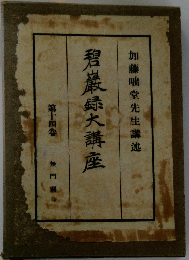 加藤咄堂先生講述
碧巖録大講座
第十四卷